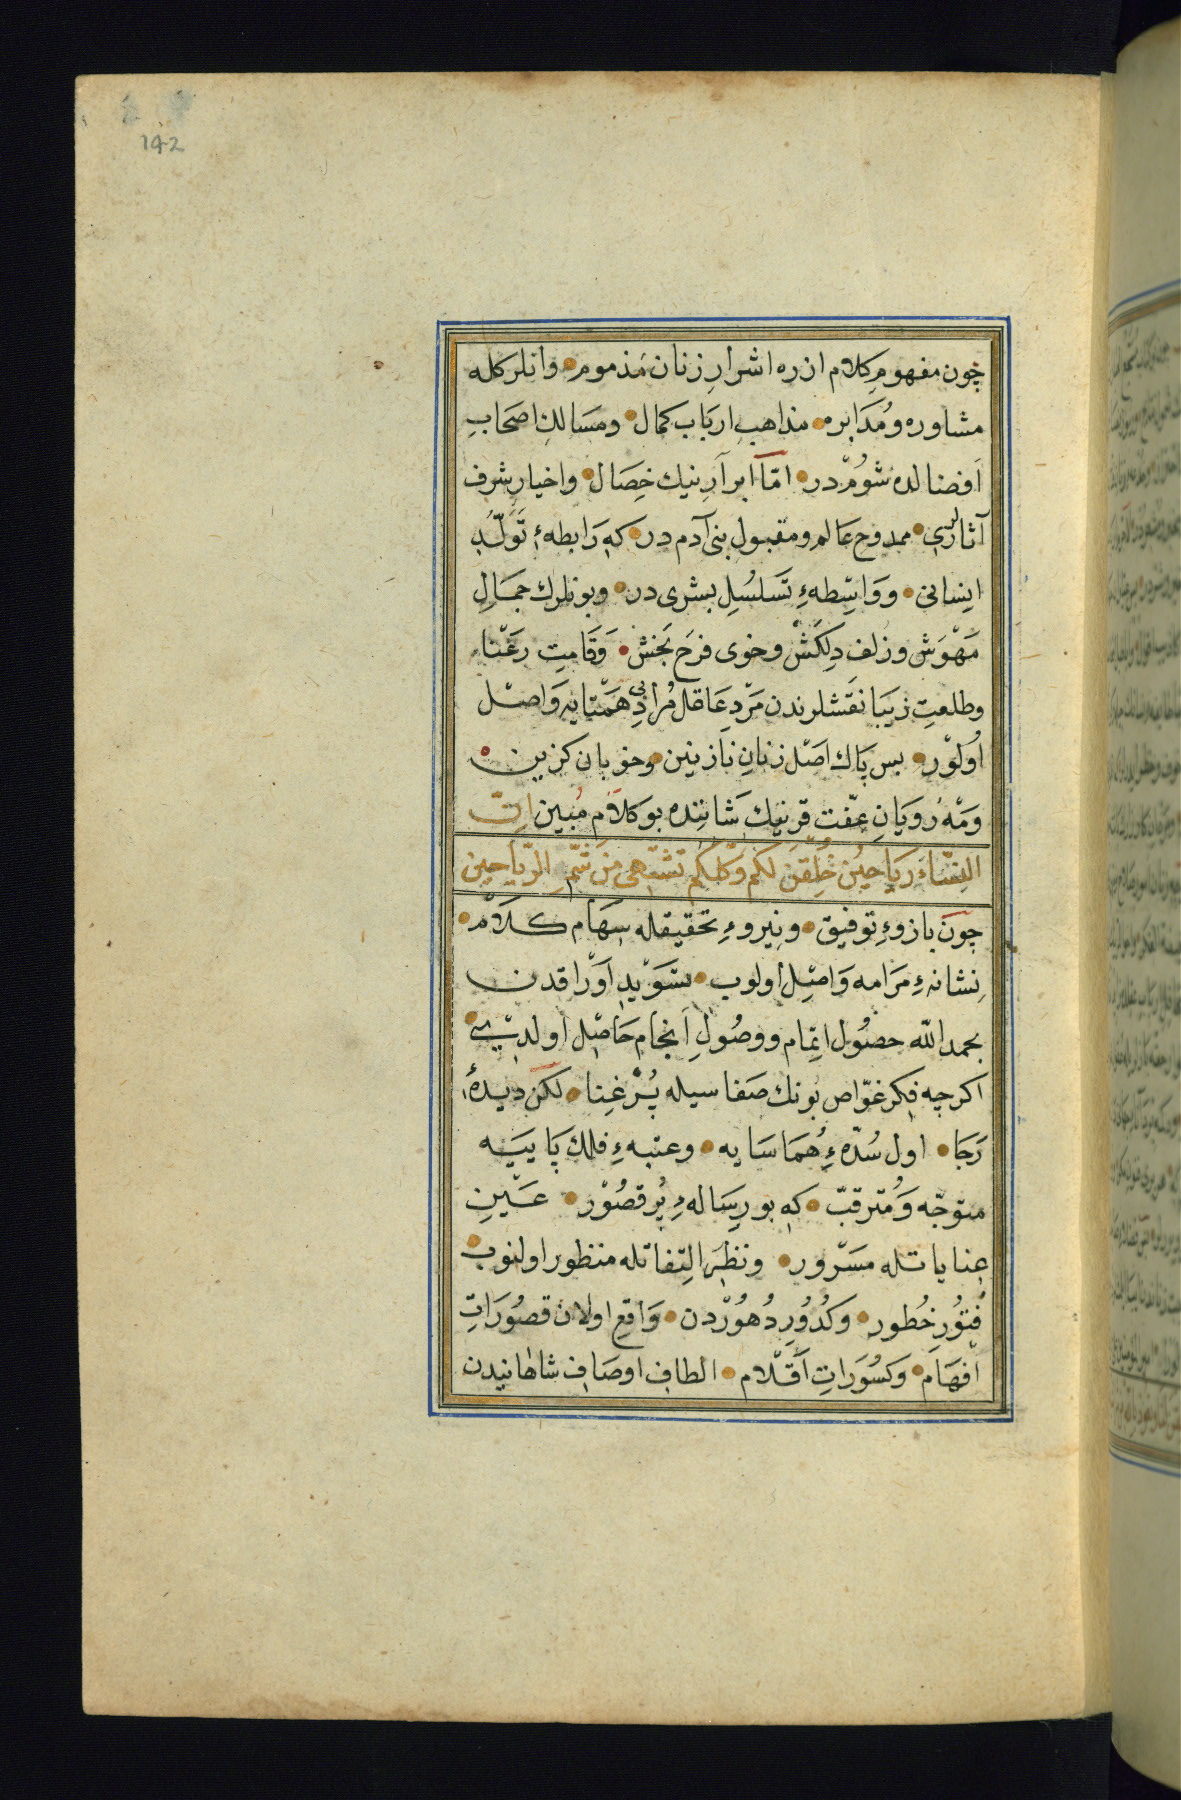 142
چون مفهومِ كلام ازره اشرارِ زنان مَذموم وانلركله
مشاوره ومُدَابره مذاهبِ اربَاب كمال ومسَالكِ اصحَابِ
اَفضالده شُومْ در امّا ابرارِ نيك خِصَال واخيارِ شرف
آثارلری ممدوح عَالم ومقبولِ بنی آدم در كه رَابطهٔ تَوَلُّدِ
انسانی وَوَاسِطهءِ تَسَلسُلِ بشری در وبونلرك جمَالِ
مَهْوَش وزلفِ دِلكَشْ وخوی فرَح بَخش وَقَامتِ رَعْنا
وطلعتِ زيبَا نقشلرندن مَرْدِ عَاقل مُرادِ بی هَمْتايه وَاصل
اُولوُر بس پَاك اصَل زنانِ نازنين وخوبان كزين
وَمَهْ رُويَانِ عِفّت قرينك شَاننده بو كلامِ مُبين اِنّ
النِسَّاءَ رَيَاحينُ خُلِقْنَ لكم وَكلكم تشتَهی مِن شَمِّ الرّياحين
چون بازوءِ توفيق ونيروءِ تحقيقله سِهَام كَلَامْ
نشانهءِ مَرَامه وَاصِل اولوب تسَوْيدِ اَوْراقدن
بحمد اللّه حصُول اتمام ووصُولِ اَنجام حَاصِل اولدیسه
اكرچه فِكر غوّاص بونك صَفاسيله پُرْ غِنا لكن ديدهٔ
رَجَا اول سُدّهءِ هُمَاسَايه وعتبهءِ فلك پَايَيه
متوجّه وَمُترقبّ كه بو رِسَالهءِ پُر قصُوُر عَيْنِ
عِنايَاتله مَسَرّور ونظَرِ الِتفاتله منظور اولنوب
فُتوُرِ خُطور وكُدُورِ دُهوُردن وَاقع اولان قصُورَاتِ
اَفهَام وَكسُوَراتِ اَقلام الطافِ اوصَاف شاهانيدن